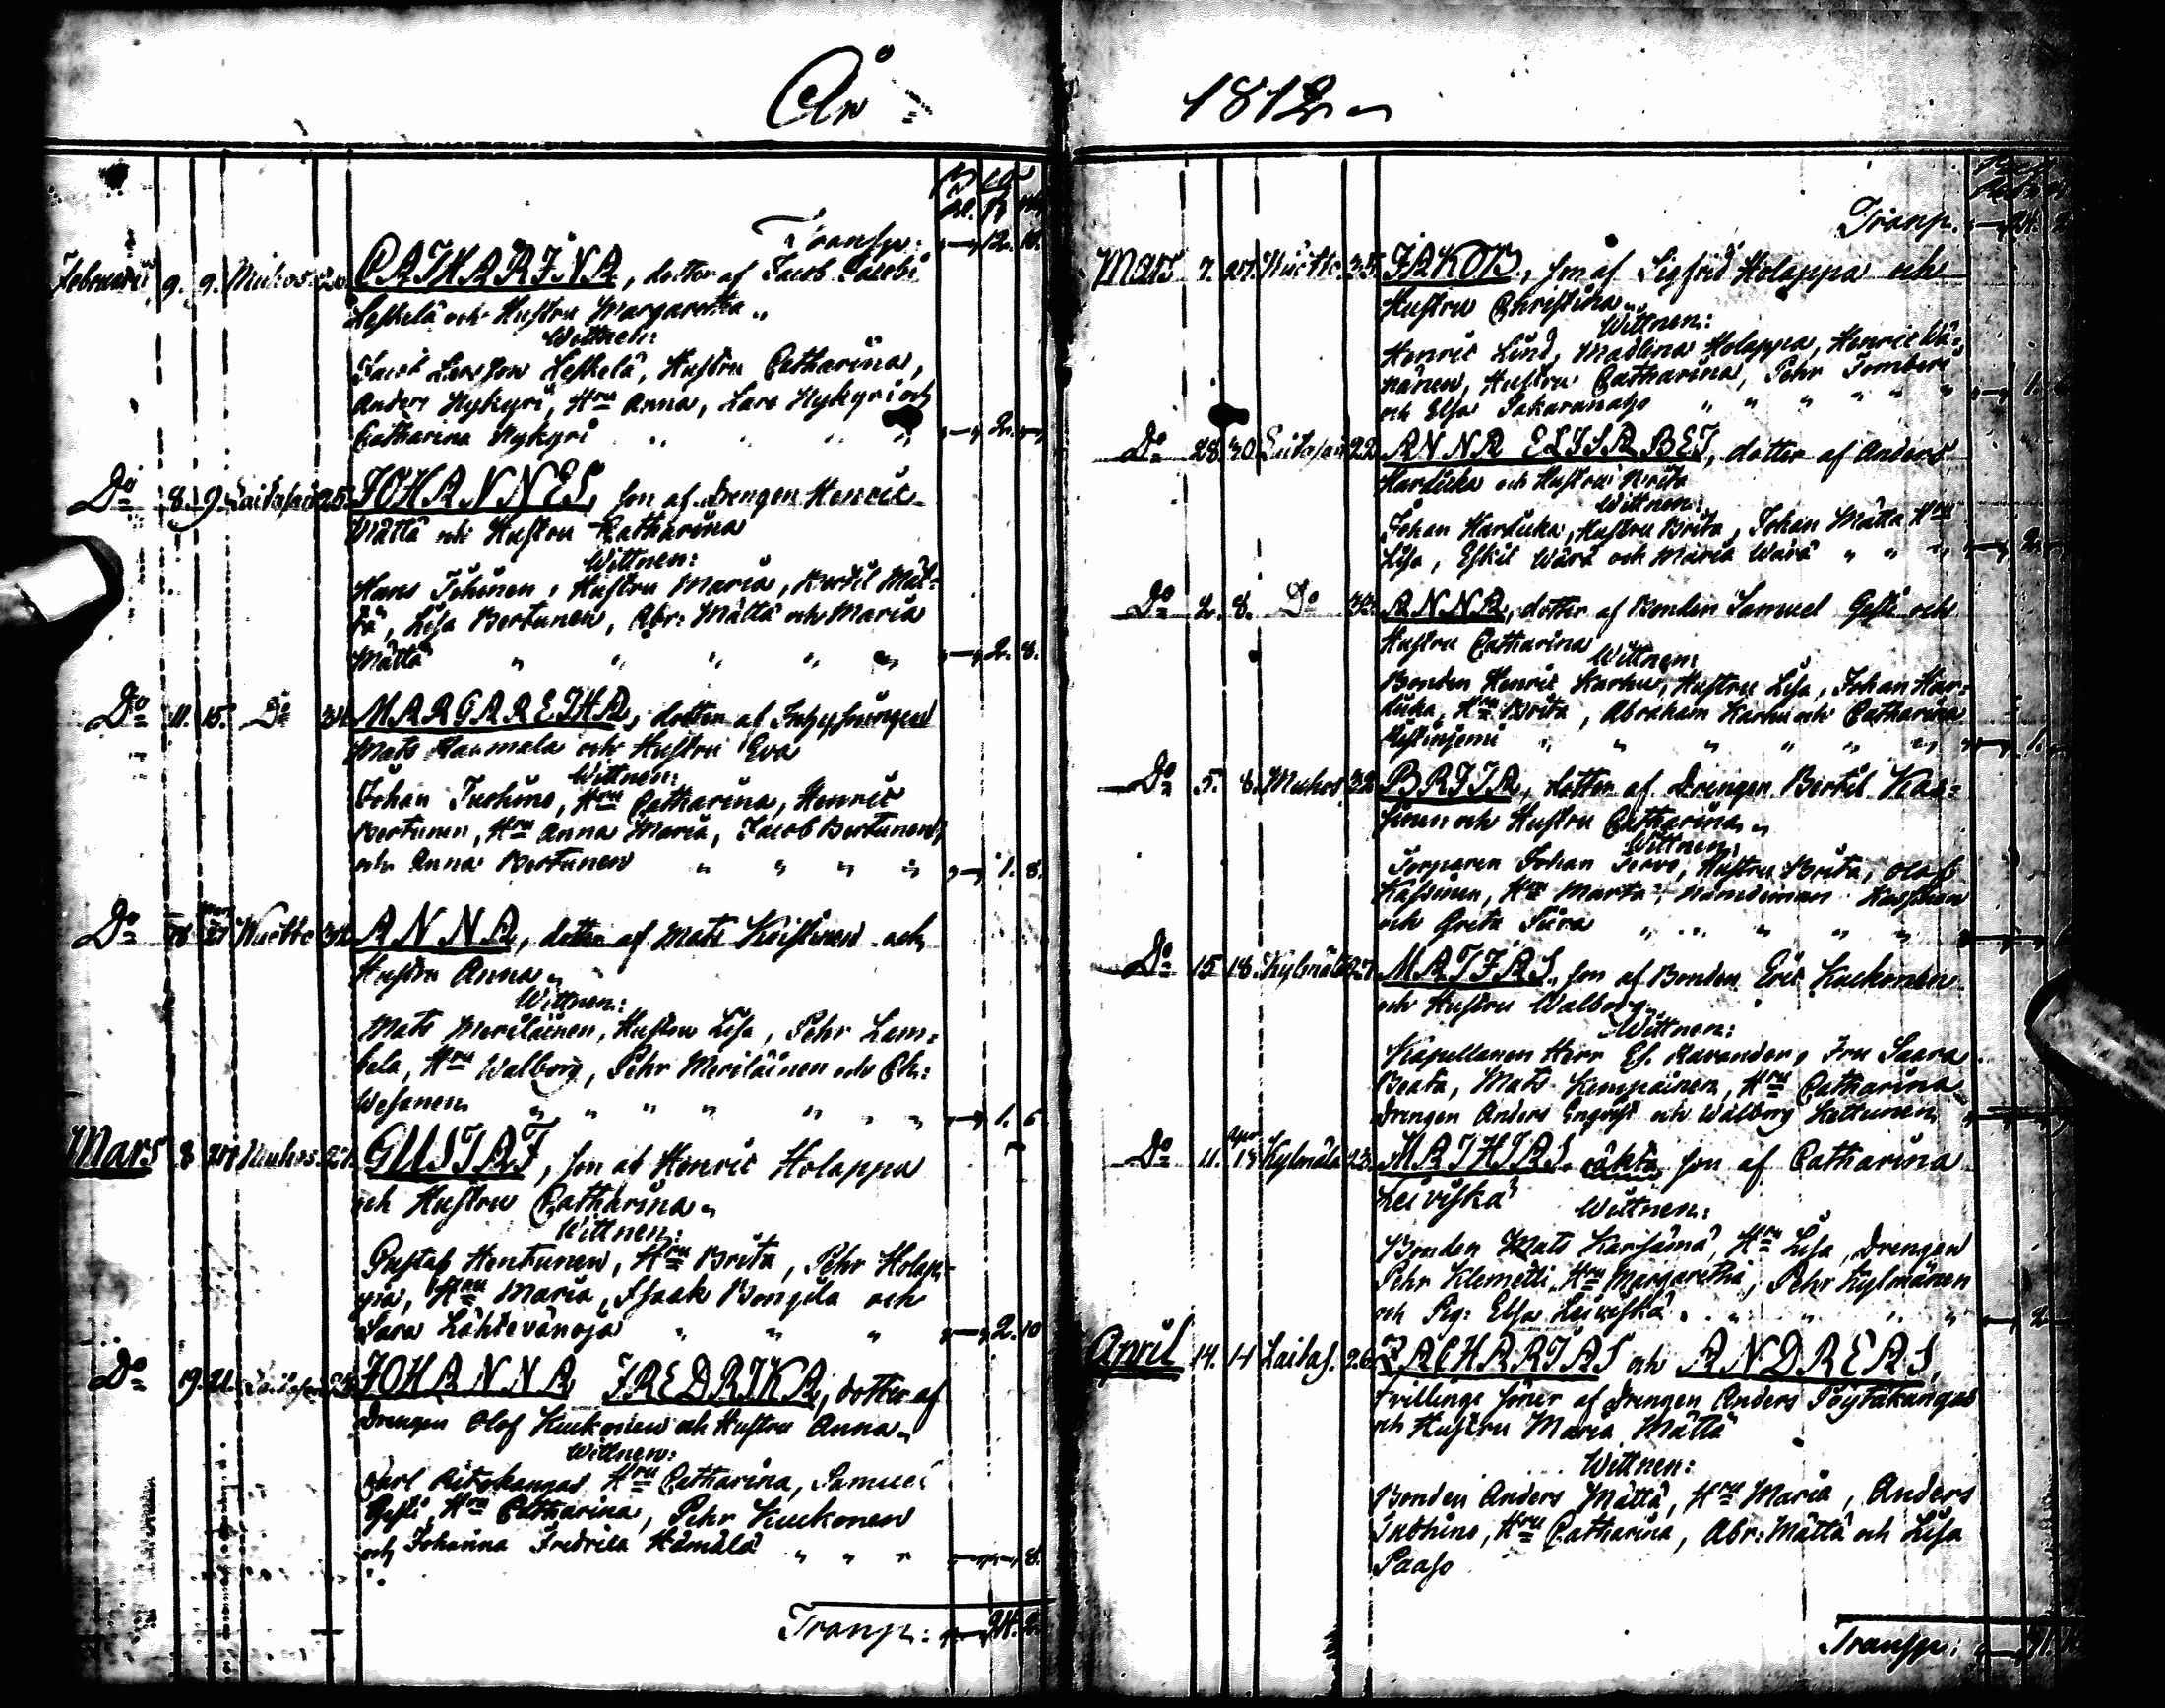 År
1812
Transp: 12. 10.
Februarii 9. 9. Muhos. CATHARINA, dotter af Jacob Jacobs
Leskelä och Hustru Margareta
Wittnen:
Jacob Larsson Leskelä, Hustru Catharina,
Anders Nykyri, Hru Anna, Lars Nykyri och
Catharina Nykyri 2.
Do 8. 9. 25. JOHANNES, son af Drengen Henric
Mättä och Hustru Catharina
Wittnen:
Hans Tihinen, Hustru Maria, Bertil Mät-
tä, Lisa Bertunen, Abr: Mättä och Maria
Mättä 2. 8.
Do 11. 15. Do MARGARETHA, dotter af
Mats Raumala och Hustru Eva
Wittnen:
Johan Juohimo, Hru Catharina, Henric
Bertunen, Hru Anna Maria, Jacob Bertunen
och Anna Bertunen 1. 8.
Do ANNA, dotter af Mats och
Hustru Anna
Wittnen:
Mats Meriläinen, Hustru Lisa, Pehr Lam-
bela, Hru Walborg, Pehr Meriläinen och Ch:
Wesanen 1. 6
Mars 8 Muhos. 27. GUSTAF, son af Henric Holappa
och Hustru Catharina
Wittnen:
Gustaf Hentunen, Hru Brita, Pehr Holap-
pa, Hru Maria, Isaak Bongila och
Sara Lähtevänoja 2. 10
Do 19. 21. JOHANNA FREDRIKA, dotter af
Drengen Olof Kuukonen och Hustru Anna
Wittnen:
Carl Aitokangas Hru Catharina, Samuel
Gesti, Hru Catharina, Pehr Kuukonen
och Johanna Fredrica Hämälä 8.
Transp: 24. 2.
Transp. 24. 2
Mars 7. 27. JAKOB, son af Sigfrid Holappa och
Hustru Christina
Wittnen:
Henric Lund, Madlena Holappa, Henric Wä-
nänen, Hustru Catharina, Pehr Tomberi
och Elsa Pakaranaho 1.
Do 28. 30. 22 ANNA ELISABET, dotter af Anders
Harduka och Hustru Brita
Wittnen:
Johan Harduka, Hustru Brita, Johan Mätta Hru
Lisa, Eskil Wärä och Maria Wärä 2.
Do 2. 8. Do 32. ANNA, dotter af Bonden Samuel Gesti och
Hustru Catharina
Wittnen:
Bonden Henric Karhu, Hustru Lisa, Johan Har-
duka, Hru Brita, Abraham Karhu och Catharina
1.
Do 5. 8. Muhos. 32 BRITA, dotter af Drengen Bertil Kas-
sinen och Hustru Catharina
Wittnen:
Torparen Johan Tervo, Hustru Brita, Olof
Kassinen, Hru Marta, Nämdeman Kassinen
och Greta Tura
Do 15 18. Kylmälä 27. MATIAS, son af Bonden Eric Kuckonen
och Hustru Walborg
Wittnen:
Kapellanen Herr Es. Ravander, Fru Saara
Beata, Mats Kemppainen, Hru Catharina
Drengen Anders Engqvist och Walborg Kettunen
Do 11. Apr 13 Kylmälä 23. MATHIAS, oäkta son af Catharina
Leiviskä
Wittnen:
Bonden Mats Karsämä, Hru Lisa, Drengen
Pehr Klemetti, Hru Margaretha, Pehr Kylmänen
och Pig: Elsa Leiviskä 2
April 14. 14 Laitas. 26. ZACHARIAS och ANDREAS,
tvillinge söner af Drengen Anders Pöytäkangas
och Hustru Maria Mättä
Wittnen:
Bonden Anders Mättä, Hru Maria, Anders
Juohimo, Hru Catharina, Abr: Mättä och Lisa
Paaso
Transp: